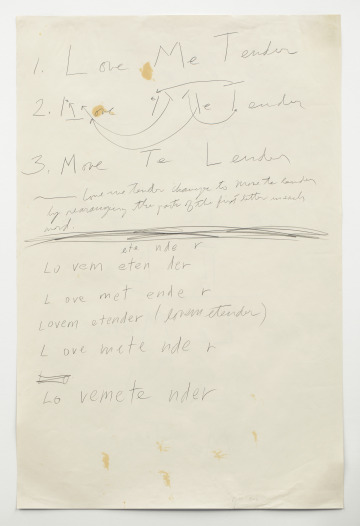 1. Love Me Tender
2. ove e ender
3. Move Te Lender
Love me Tender changes to move te lender
by rearranging the parts of the first letter in each
word.
ete nde r
Lo vem eten der
L ove met ende r
Lovem etender (lovem etender)
L ove mete nde r
Lo
Lo vemete nder